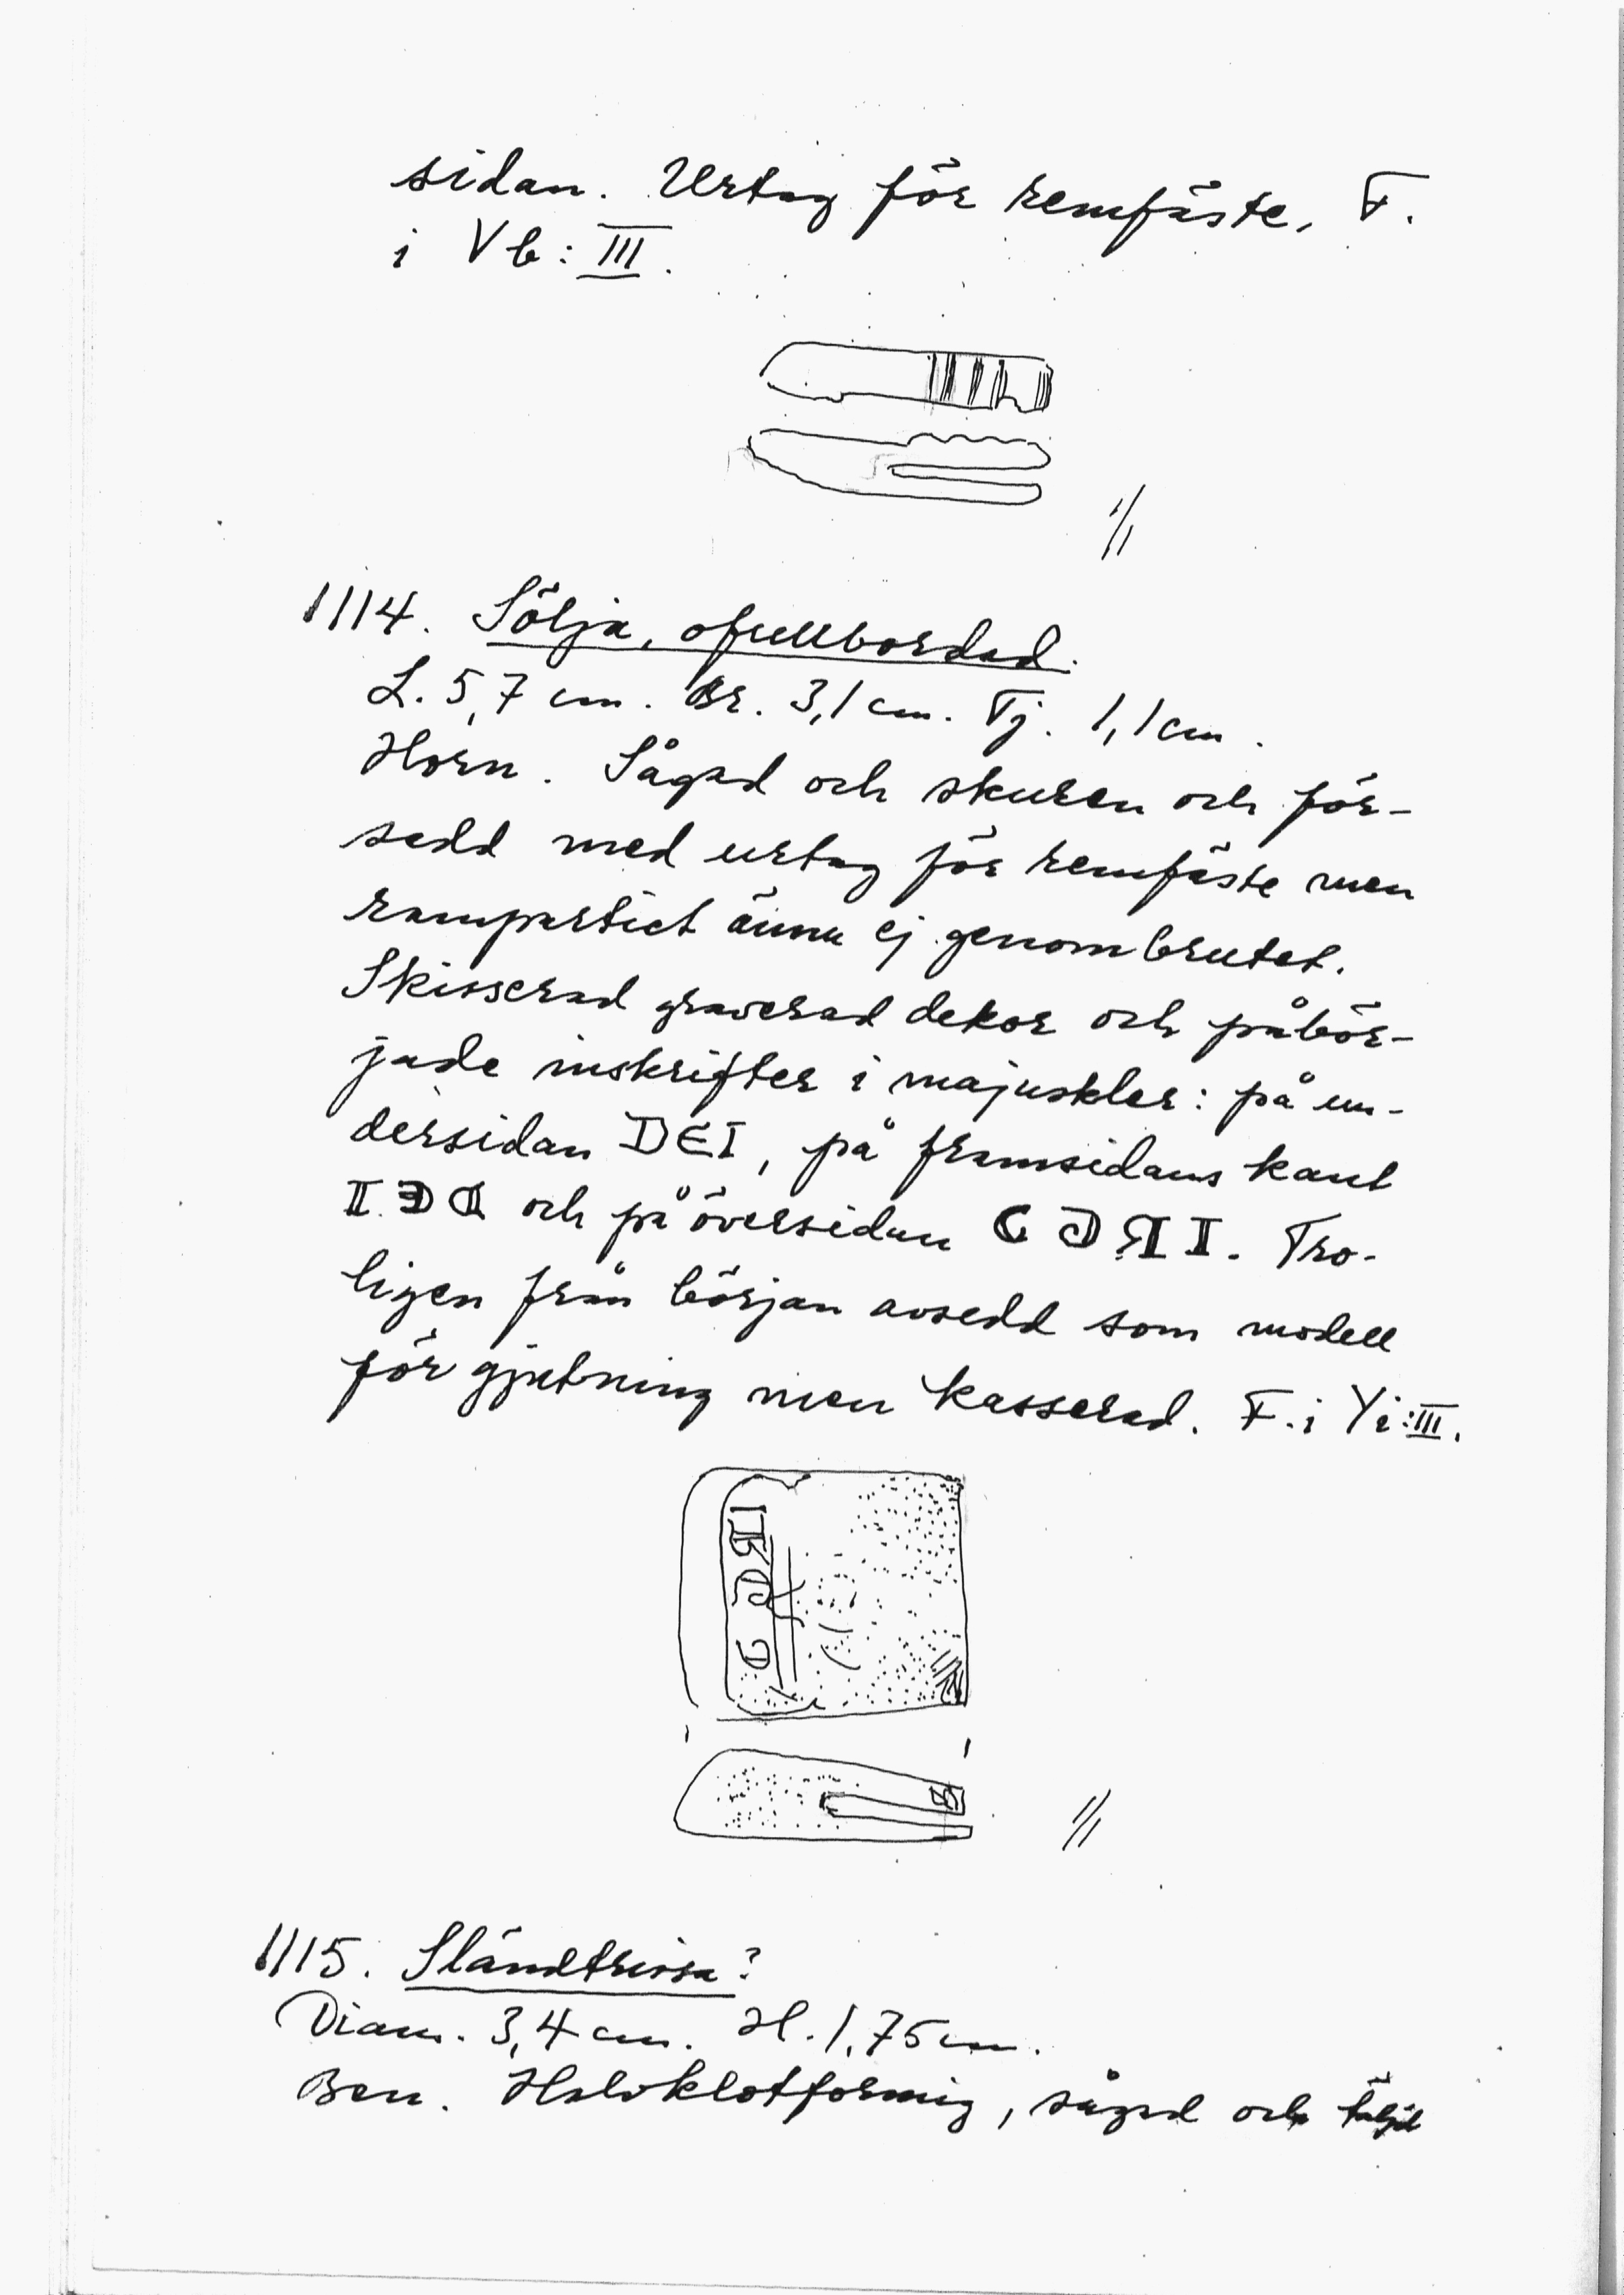 sidan. Urtag för remfäste. F.
i Vb: III.
1/1
1114. Sölja, ofullbordad.
L. 5,7 cm. Br. 3,1 cm. Tj. 1,1 cm.
Horn. Sågad och skuren och för-
sedd med urtag för remfäste men
rampartiet ännu ej genombrutet.
Skisserad graverad dekor och påbör-
jade inskrifter i majuskler: på un-
dersidan DEI, på framsidans kant
och på översidan Tro-
ligen från början avsedd som modell
för gjutning men kasserad. F. i Yi: III.
1/1
1115. Sländtrissa?
Diam. 3,4 cm. H. 1,75 cm.
Ben. Halvklotformig, sågad och täljd